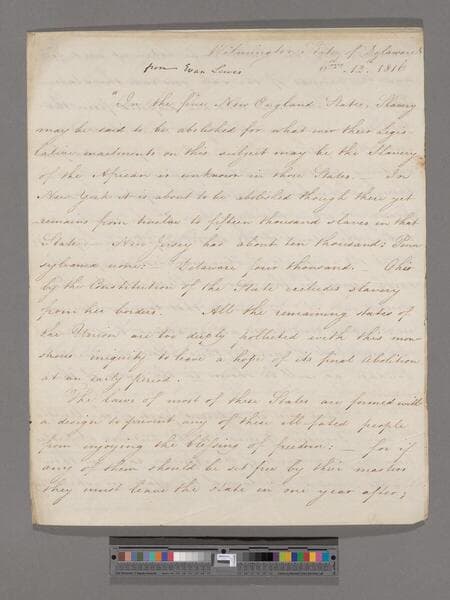 Wilmington, State of Delaware
from Evan Lewis
12. 1816
"In the five New England States, Slavery
may be said to be abolished for what ever their legis
lative enactments on this subject may be the Slavery
of the African is unknown in those States. — In
New York it is about to be abolished though there yet
remains from twelve to fifteen thousand slaves in that
State. — New Jersey has about ten thousand: Penn
sylvania none: — Delaware four thousand. — Ohio
by the Constitution of the State excludes slavery
from her borders. All the remaining states of
the Union are too deeply polluted with this mon
strous iniquity to leave a hope of its final Abolition
at an early period.
The laws of most of these States are formed with
a design to prevent any of these ill-fated people
from enjoying the blessings of freedom: — for if
any of them should be set free by their masters
they must leave the state in one year after;